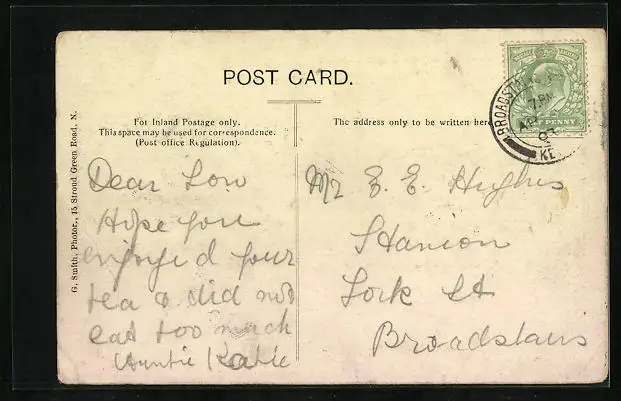 POST CARD.
For Inland Postage only.
This space may be used for correspondence.
(Post office Regulation).
The address only to be written here
G. Smith, Photor., 15 Stroud Green Road, N.
BROADST
7.PM
AP
07
KE
HALFPENNY
Dear
Hope you
enjoyed your
tea & did not
eat too much
Auntie Katie
Mr E. E. Hughes
Stanion
York St
Broadstairs